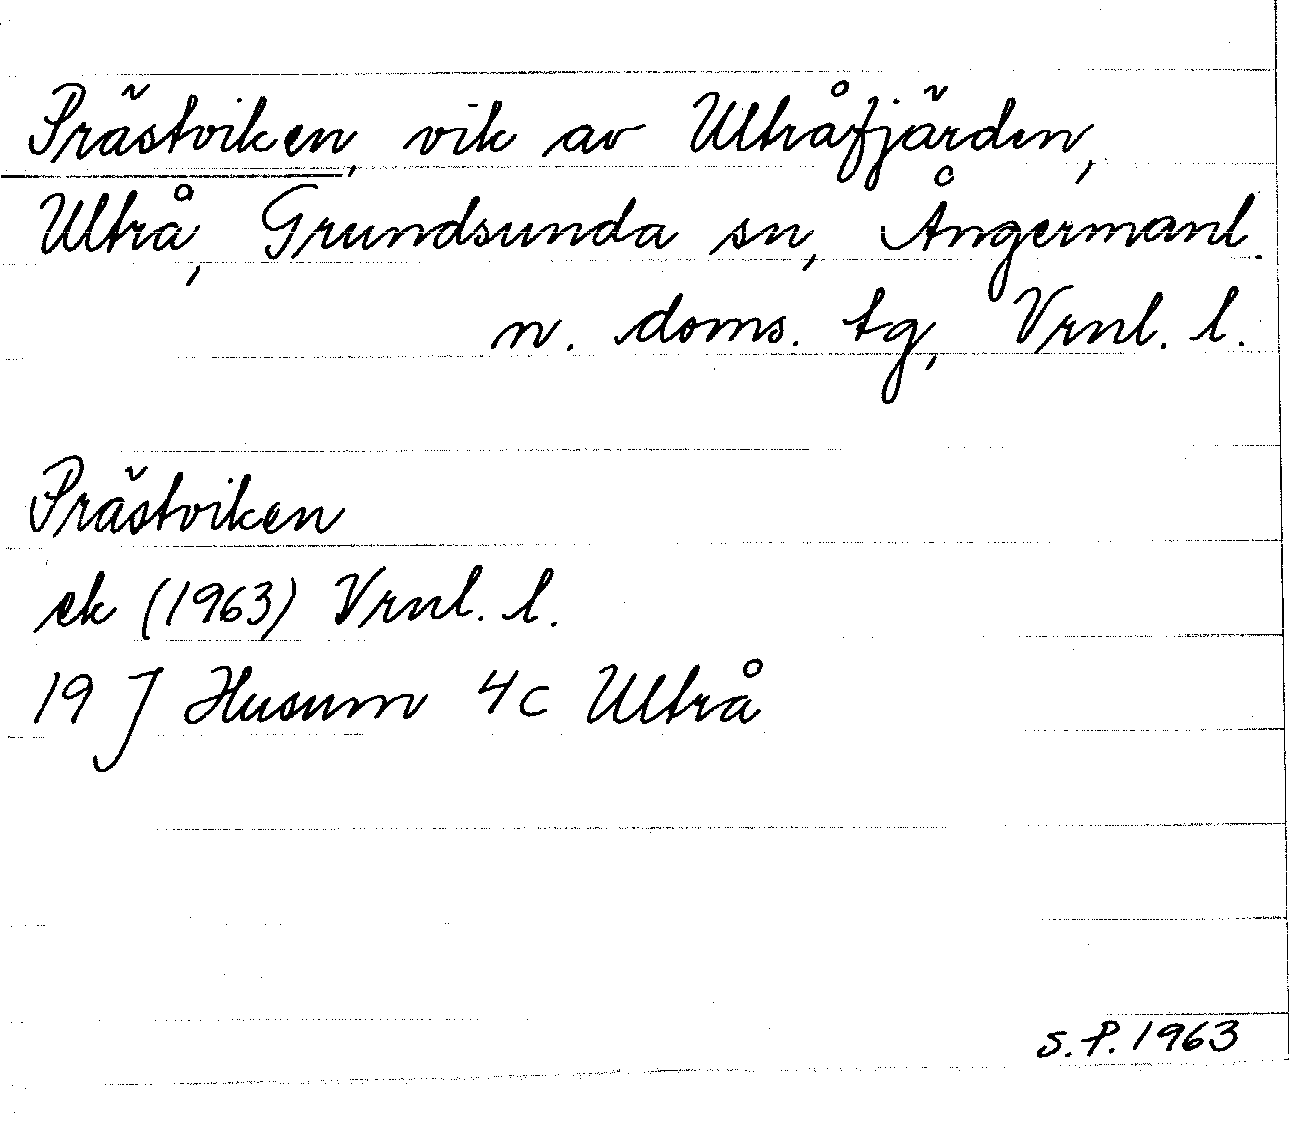 Prästviken, vik av Ultråfjärden,
Ultrå, Grundsunda sn, Ångermanl.
n. doms. tg, Vrnl. l.
Prästviken
ek (1963) Vrnl. l.
19 J Husum 4c Ultrå
S.P. 1963